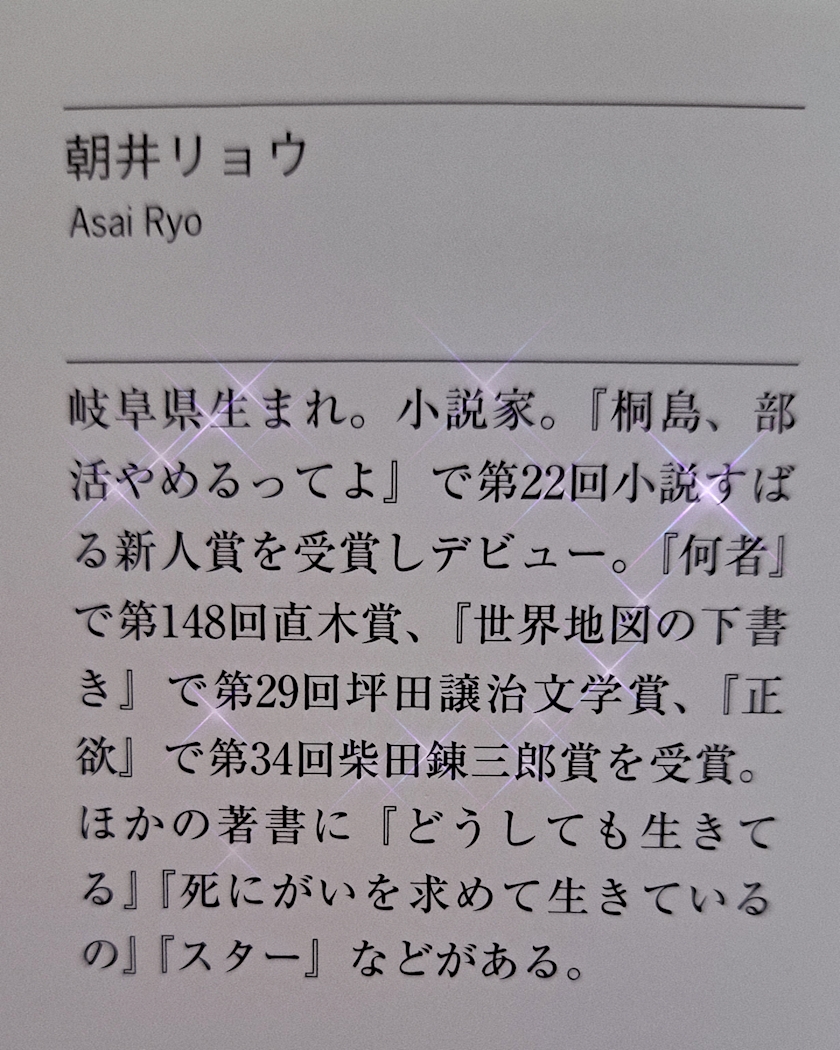 朝井リョウ
Asai Ryo
岐阜県生まれ。小説家。『桐島、部
活やめるってよ』で第22回小説すば
る新人賞を受賞しデビュー。『何者』
で第148回直木賞、『世界地図の下書
き』で第29回坪田譲治文学賞、『正
欲』で第34回柴田錬三郎賞を受賞。
ほかの著書に『どうしても生きて
る』『死にがいを求めて生きている
の』『スター』などがある。